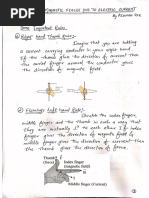 MAGNETIC FORCES DUE TO ELECTRIC CURRENT
By
Some Important Rules
① Right hand Thumb Rule:-
Imagine that you are holding
a current carrying conductor in your right hand.
If the thumb gives the direction of current then
the curled fingers around the conductor gives
the direction of magnetic field
② Flemings Left Hand Rule:-
Stretch the index finger,
middle finger and the thumb in such a way that
they are mutually ⊥ to each other. If index
finger gives the direction of magnetic field, and
middle finger gives direction of current then
the thumb gives the direction of force.
Thumb
Index finger
(magnetic field)
Middle finger (Current)